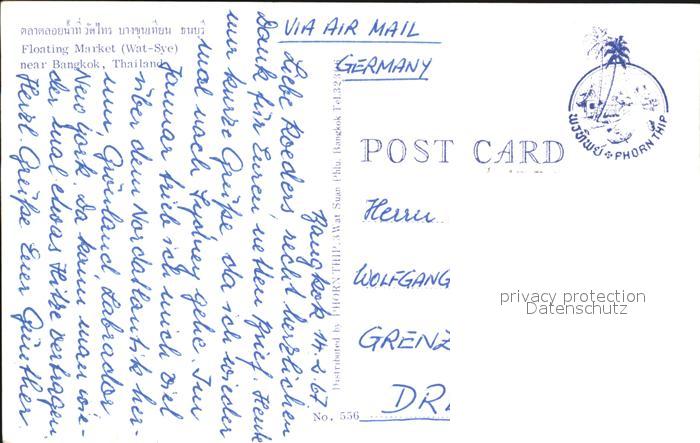 ตลาดลอยน้ำที่วัดไทร บางขุนเทียน ธนบุรี
Floating Market (Wat-Sye)
near Bangkok, Thailand
VIA AIR MAIL
GERMANY
พรทิพย์ PHORNTHIP
POST CARD
Distributed by PHORNTHIP, 3 Wat Suan Phlu, Bangkok Tel.
No. 556
Bangkok 14.2.67
Liebe Roeders, recht herzlichen
Dank für Euren netten Brief. Heute
nur kurze Grüße da ich wieder
mal nach Sydney gehe. Im
Januar trieb ich mich viel
über dem Nordatlantik her-
um, Grönland, Labrador,
New York. Da kann man wie-
der mal etwas Hitze vertragen.
Herzl. Grüße Euer Günther.
Herrn
WOLFGANG
GRENZ
DR
privacy protection
Datenschutz